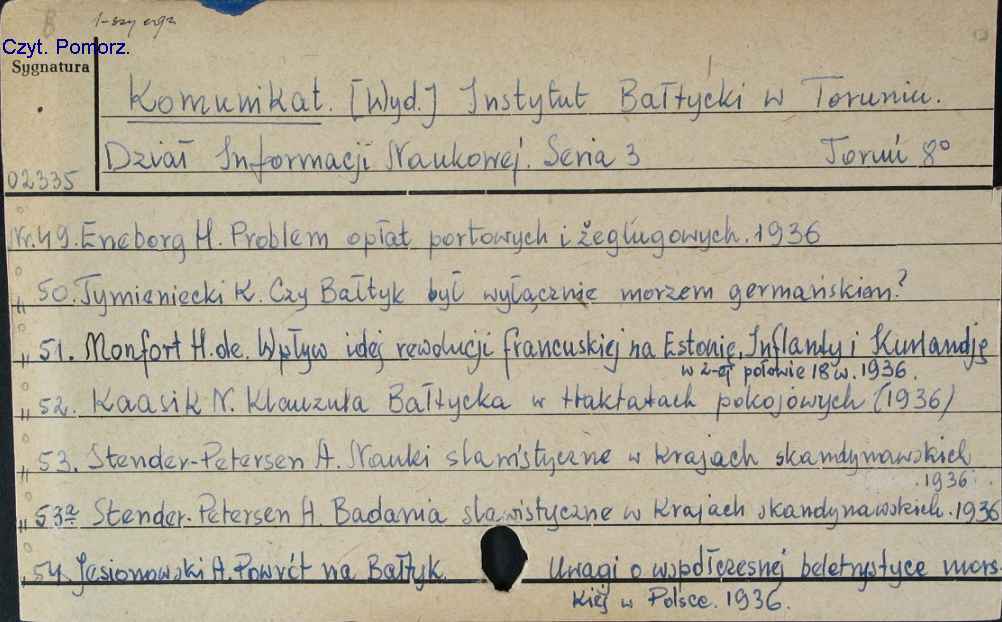 1-szy egz
Czyt. Pomorz.
Sygnatura
Komunikat. [Wyd.] Instytut Bałtycki w Toruniu.
Dział Informacji Naukowej. Seria 3 Toruń 8°
02335
Nr. 49. Eneborg H. Problem opłat portowych i żeglugowych. 1936
" 50. Tymieniecki K. Czy Bałtyk był wyłącznie morzem germańskiem?
" 51. Monfort H. de. Wpływ idej rewolucji francuskiej na Estonię, Inflanty i Kurlandję
w 2-ej połowie 18 w. 1936.
" 52. Kaasik N. Klauzula Bałtycka w traktatach pokojowych (1936)
" 53. Stender-Petersen A. Nauki slawistyczne w krajach skandynawskich
. 1936.
" 53a Stender-Petersen A. Badania slawistyczne w Krajach skandynawskich. 1936
" 54. Jesionowski A. Powrót na Bałtyk. Uwagi o współczesnej beletrystyce mors-
kiej w Polsce. 1936.